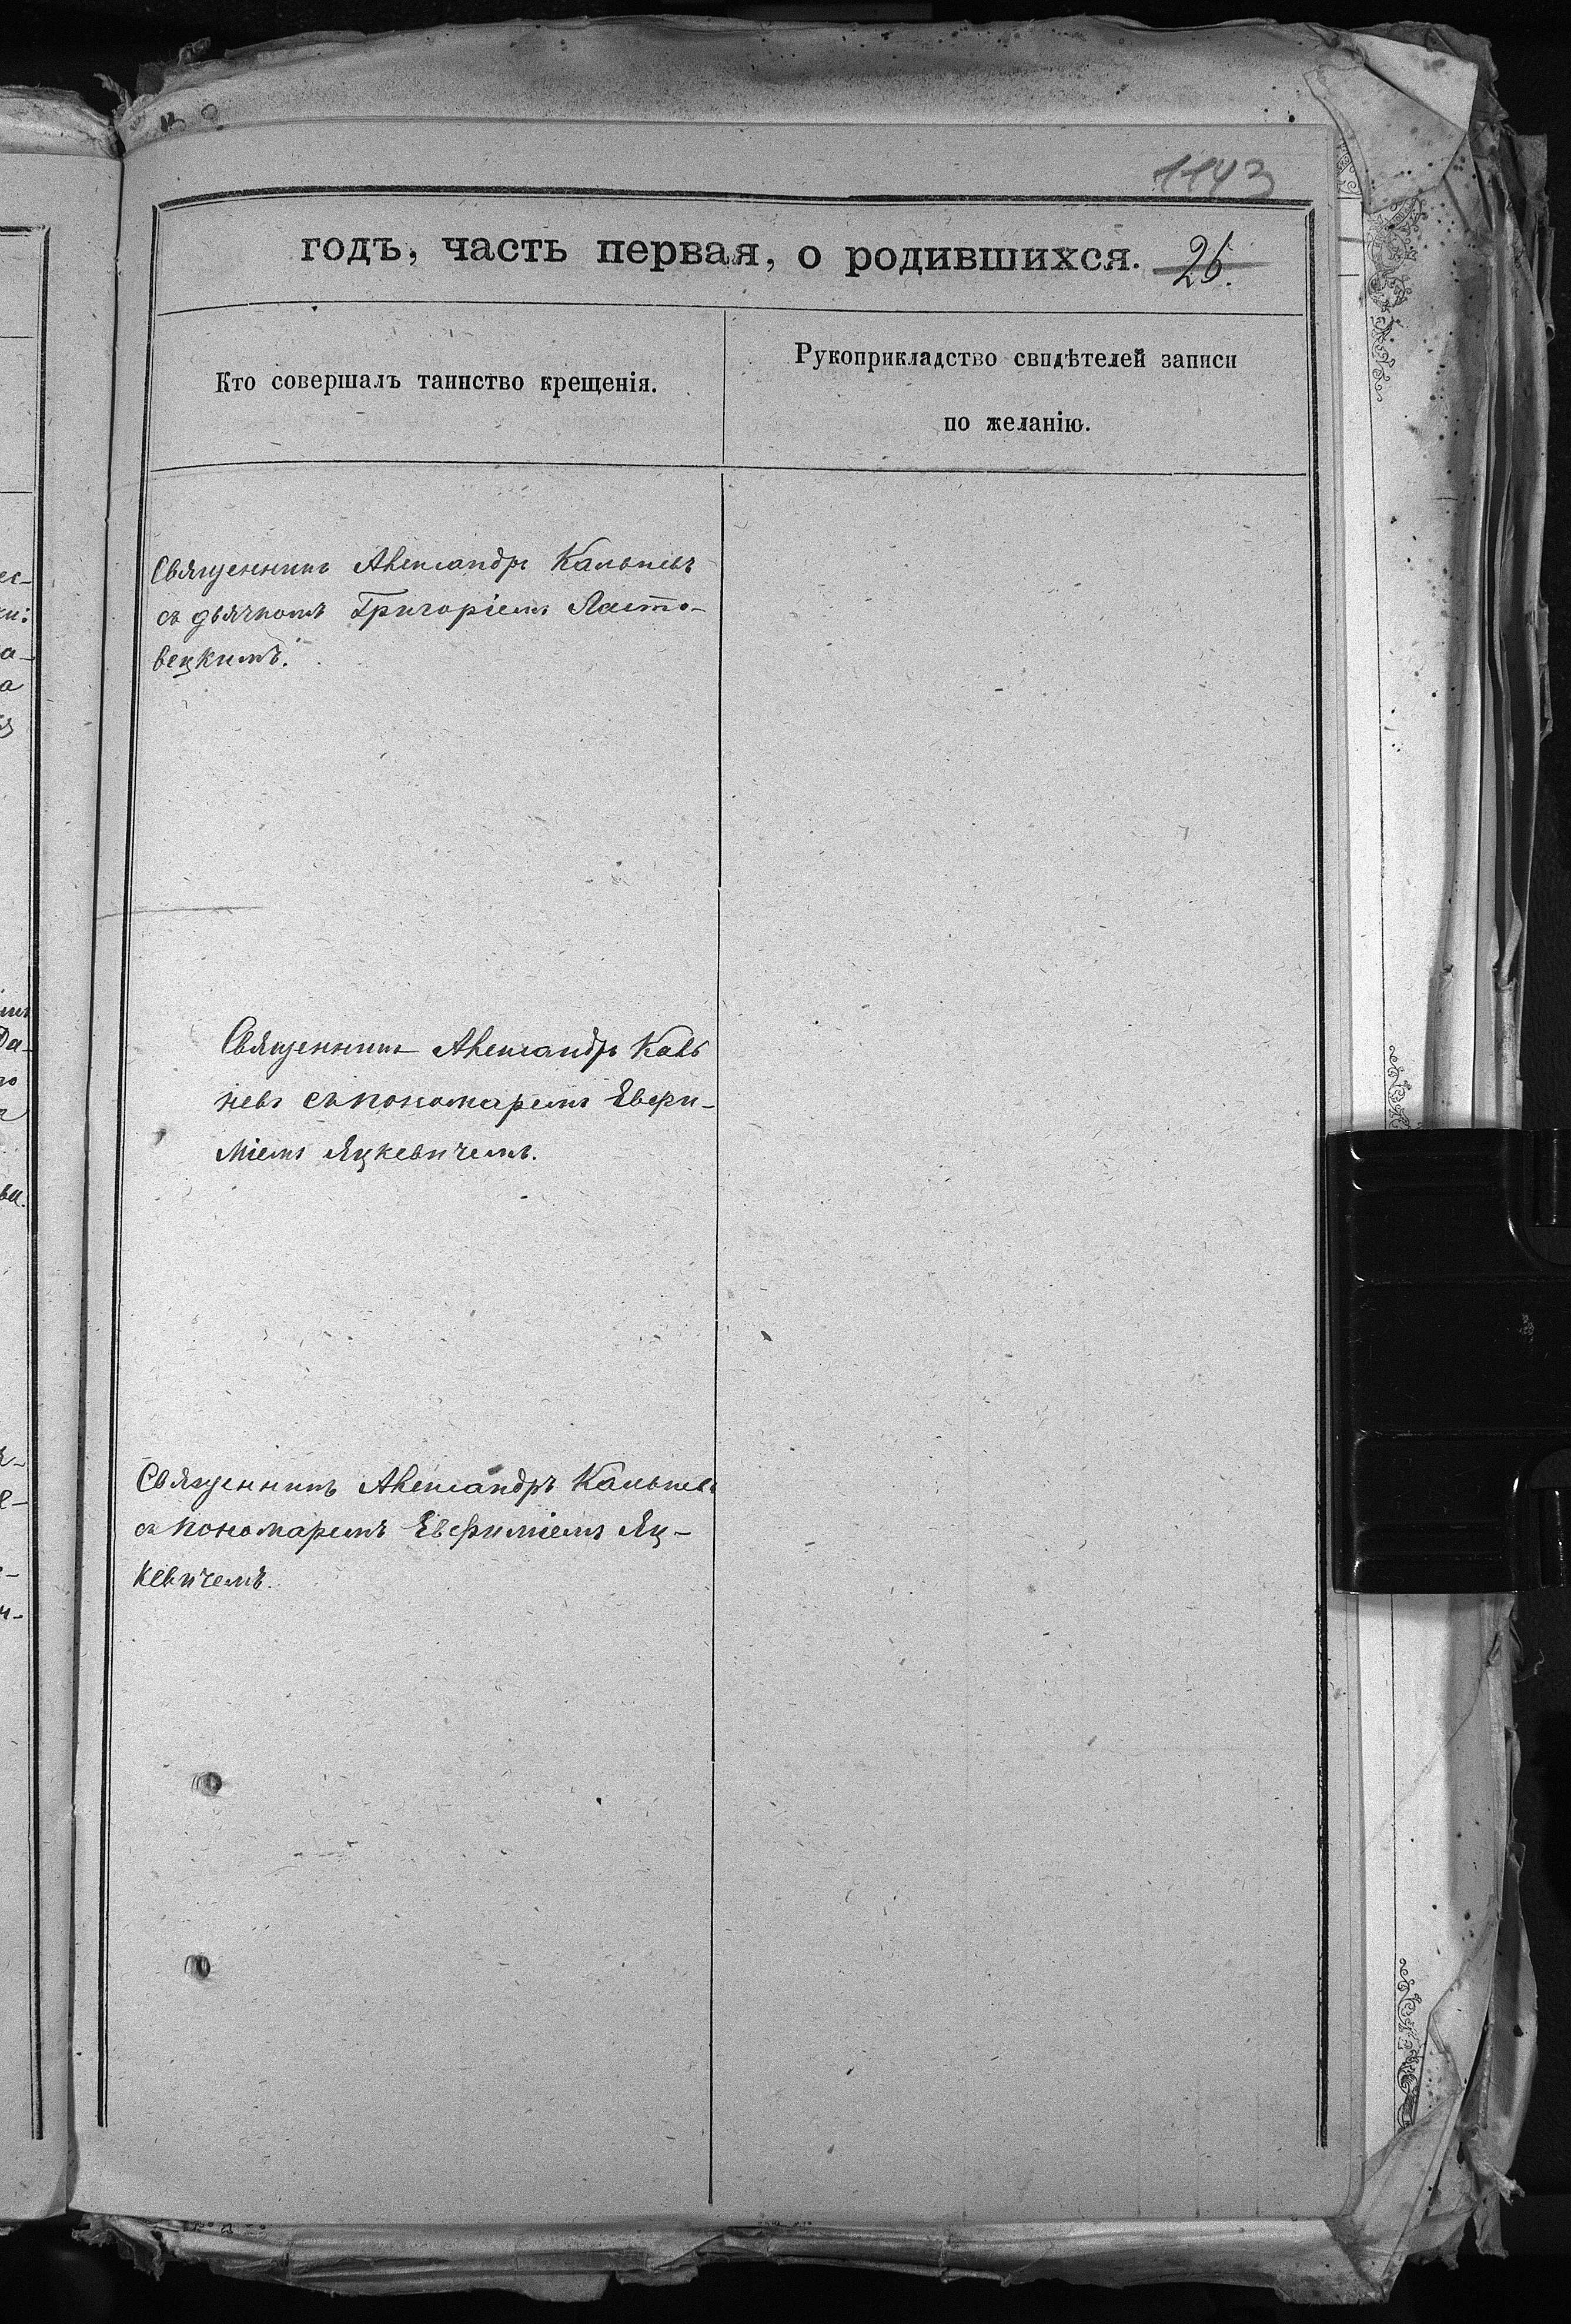 1143
годъ, часть первая, о родившихся. 26.
Кто совершалъ таинство крещенія.
Рукоприкладство свидѣтелей записи
по желанію.
Священникъ Александръ Кальневъ
съ дьячкомъ Григоріемъ Ласто-
вецкимъ.
Священникъ Александръ Каль
невъ съ пономаремъ Евфи-
міемъ Яцкевичемъ.
Священникъ Александръ Кальневъ
съ пономаремъ Евфиміемъ Яц-
кевичемъ.